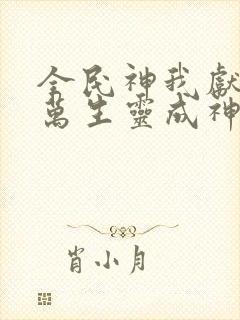 全民神我獻
萬生靈成神
肖小月